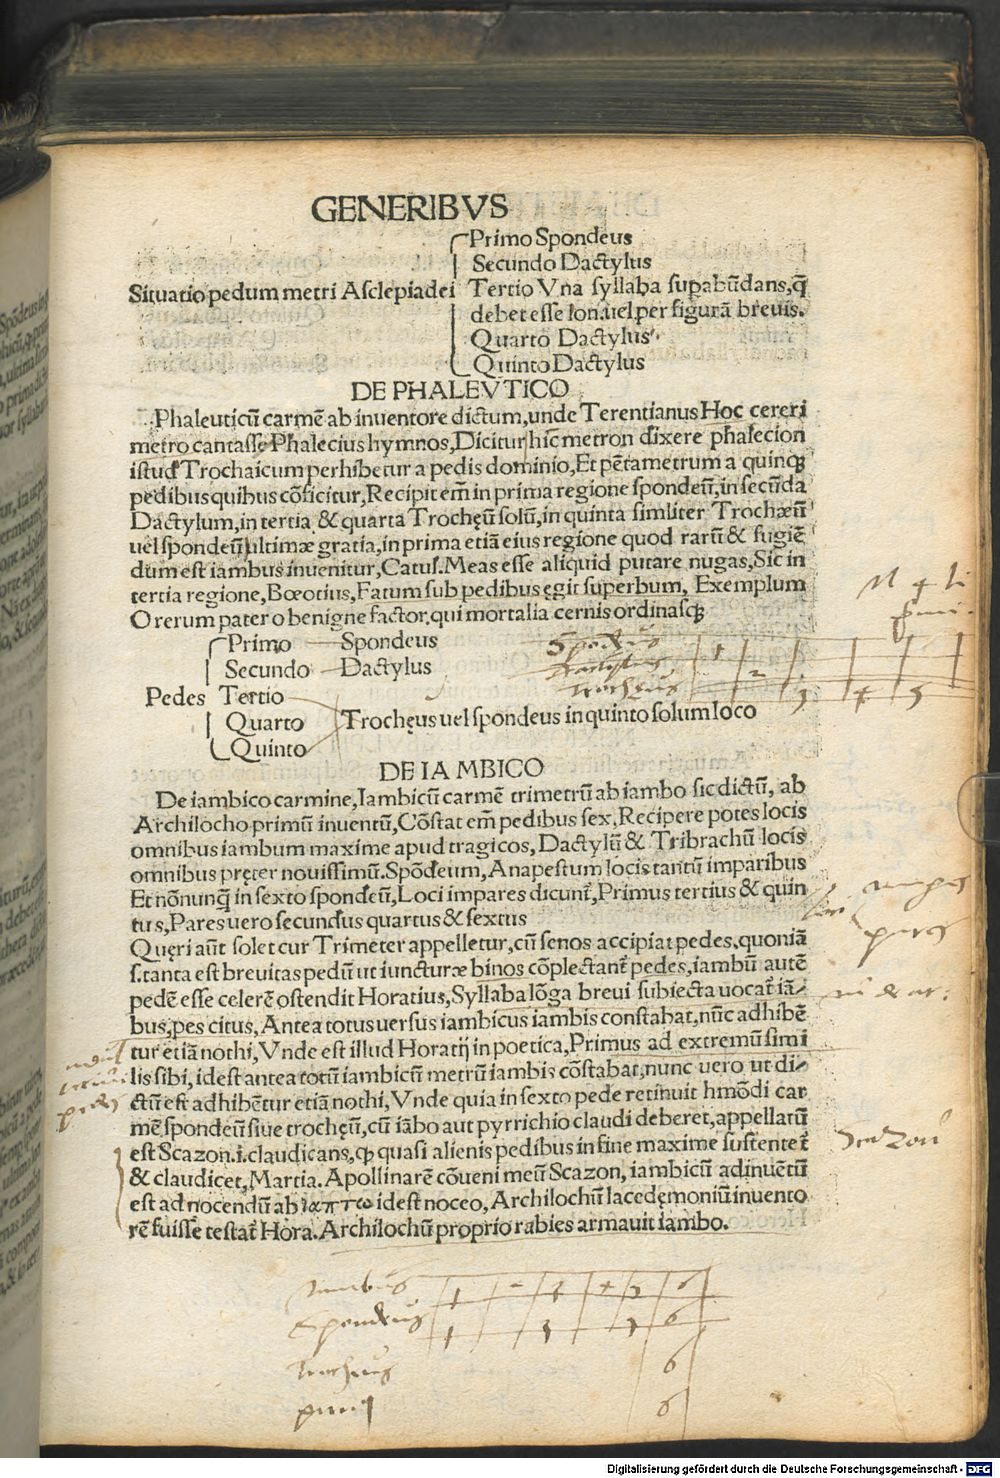 GENERIBVS
Primo Spondeus
Secundo Dactylus
Situatio pedum metri Asclepiadei Tertio Vna syllaba supabūdans,q̄
debet esse lon.uel.per figurā breuis.
Quarto Dactylus
Quinto Dactylus
DE PHALEVTICO
Phaleuticū carmē ab inuentore dictum,unde Terentianus Hoc cereri
metro cantasse Phalecius hymnos,Dicitur hīc metron dixere phalecion
istud Trochaicum perhibetur a pedis dominio,Et pētametrum a quinqꝫ
pedibus quibus cōficitur,Recipit em̄ in prima regione spondeū,in secūda
Dactylum,in tertia & quarta Trochęū solū,in quinta similiter Trochæū
uel spondeū ultimæ gratia,in prima etiā eius regione quod rarū & fugiē
dum est iambus inuenitur,Catul.Meas esse aliquid putare nugas,Sic in
tertia regione,Bœotius,Fatum sub pedibus ęgit superbum, Exemplum
O rerum pater o benigne factor,qui mortalia cernis ordinasqꝫ
Primo Spondeus
Secundo Dactylus
Pedes Tertio
Quarto Trochęus uel spondeus in quinto solum loco
Quinto
Spondeus 1
Dactylus 2
Trocheus 3 4 5
DE IA MBICO
De iambico carmine,Iambicū carmē trimetrū ab iambo sic dictū, ab
Archilocho primū inuentū,Cōstat em̄ pedibus sex,Recipere potes locis
omnibus iambum maxime apud tragicos, Dactylū & Tribrachū locis
omnibus pręter nouissimū.Spōdeum,Anapestum locis tantū imparibus
Et nōnunq̄ in sexto spondeū,Loci impares dicunt̄,Primus tertius & quin
tus,Pares uero secundus quartus & sextus
impares
loci
pares
Quęri aūt solet cur Trimeter appelletur,cū senos accipiat pedes,quoniā
s.tanta est breuitas pedū ut iuncturæ binos cōplectant̄ pedes,iambū autē
pedē esse celerē ostendit Horatius,Syllaba lōga breui subiecta uocat̄ iā⸗
bus,pes citus,Antea totus uersus iambicus iambis constabat,nūc adhibē
tur etiā nothi,Vnde est illud Horatij in poetica,Primus ad extremū simi
lis sibi,idest antea totū iambicū metrū iambis cōstabat,nunc uero ut di⸗
ctū est adhibētur etiā nothi,Vnde quia in sexto pede retinuit hmōdi car
mē spondeū siue trochęū,cū iābo aut pyrrichio claudi deberet,appellatū
est Scazon.i.claudicans,ꝙ quasi alienis pedibus in fine maxime sustentet̄
Scazon
& claudicet,Martia.Apollinarē cōueni meū Scazon,iambicū adinuētū
est ad nocendū ab ιαπτω idest noceo,Archilochū lacedęmoniū inuento
rē fuisse testat̄ Hora.Archilochū proprio rabies armauit iambo.
Iambus 1 2 3 4 5 6
Spondeus 1 3 5 6
Trocheus 6
6
Digitalisierung gefördert durch die Deutsche Forschungsgemeinschaft - DFG